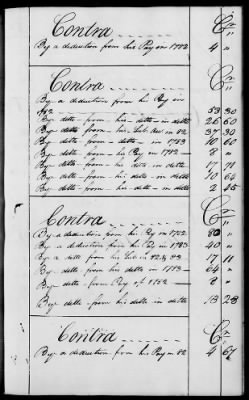 Contra Cr
By a deduction from his Pay in 1782 4 "
Contra Cr
By a deduction from his Pay in
1782 53 30
By ditto from his ditto in ditto 26 60
By ditto from his Sub. in 82 37 30
By ditto from ditto in 1783 10 60
By ditto from his Pay in 1782 8 "
By ditto from his ditto in ditto 17 71
By ditto from his ditto in ditto 10 64
By ditto from his ditto in ditto 2 45
Contra Cr
By a deduction from his Pay in 1782 80 "
By a deduction from his Pay in 1783 40 "
By a ditto from his Sub in 82 & 83 17 11
By ditto from his ditto in 1783 64 "
By ditto from Pay of 1782 8 "
By ditto from his ditto in ditto 13 28
Contra Cr
By a deduction from his Pay in 82 4 67